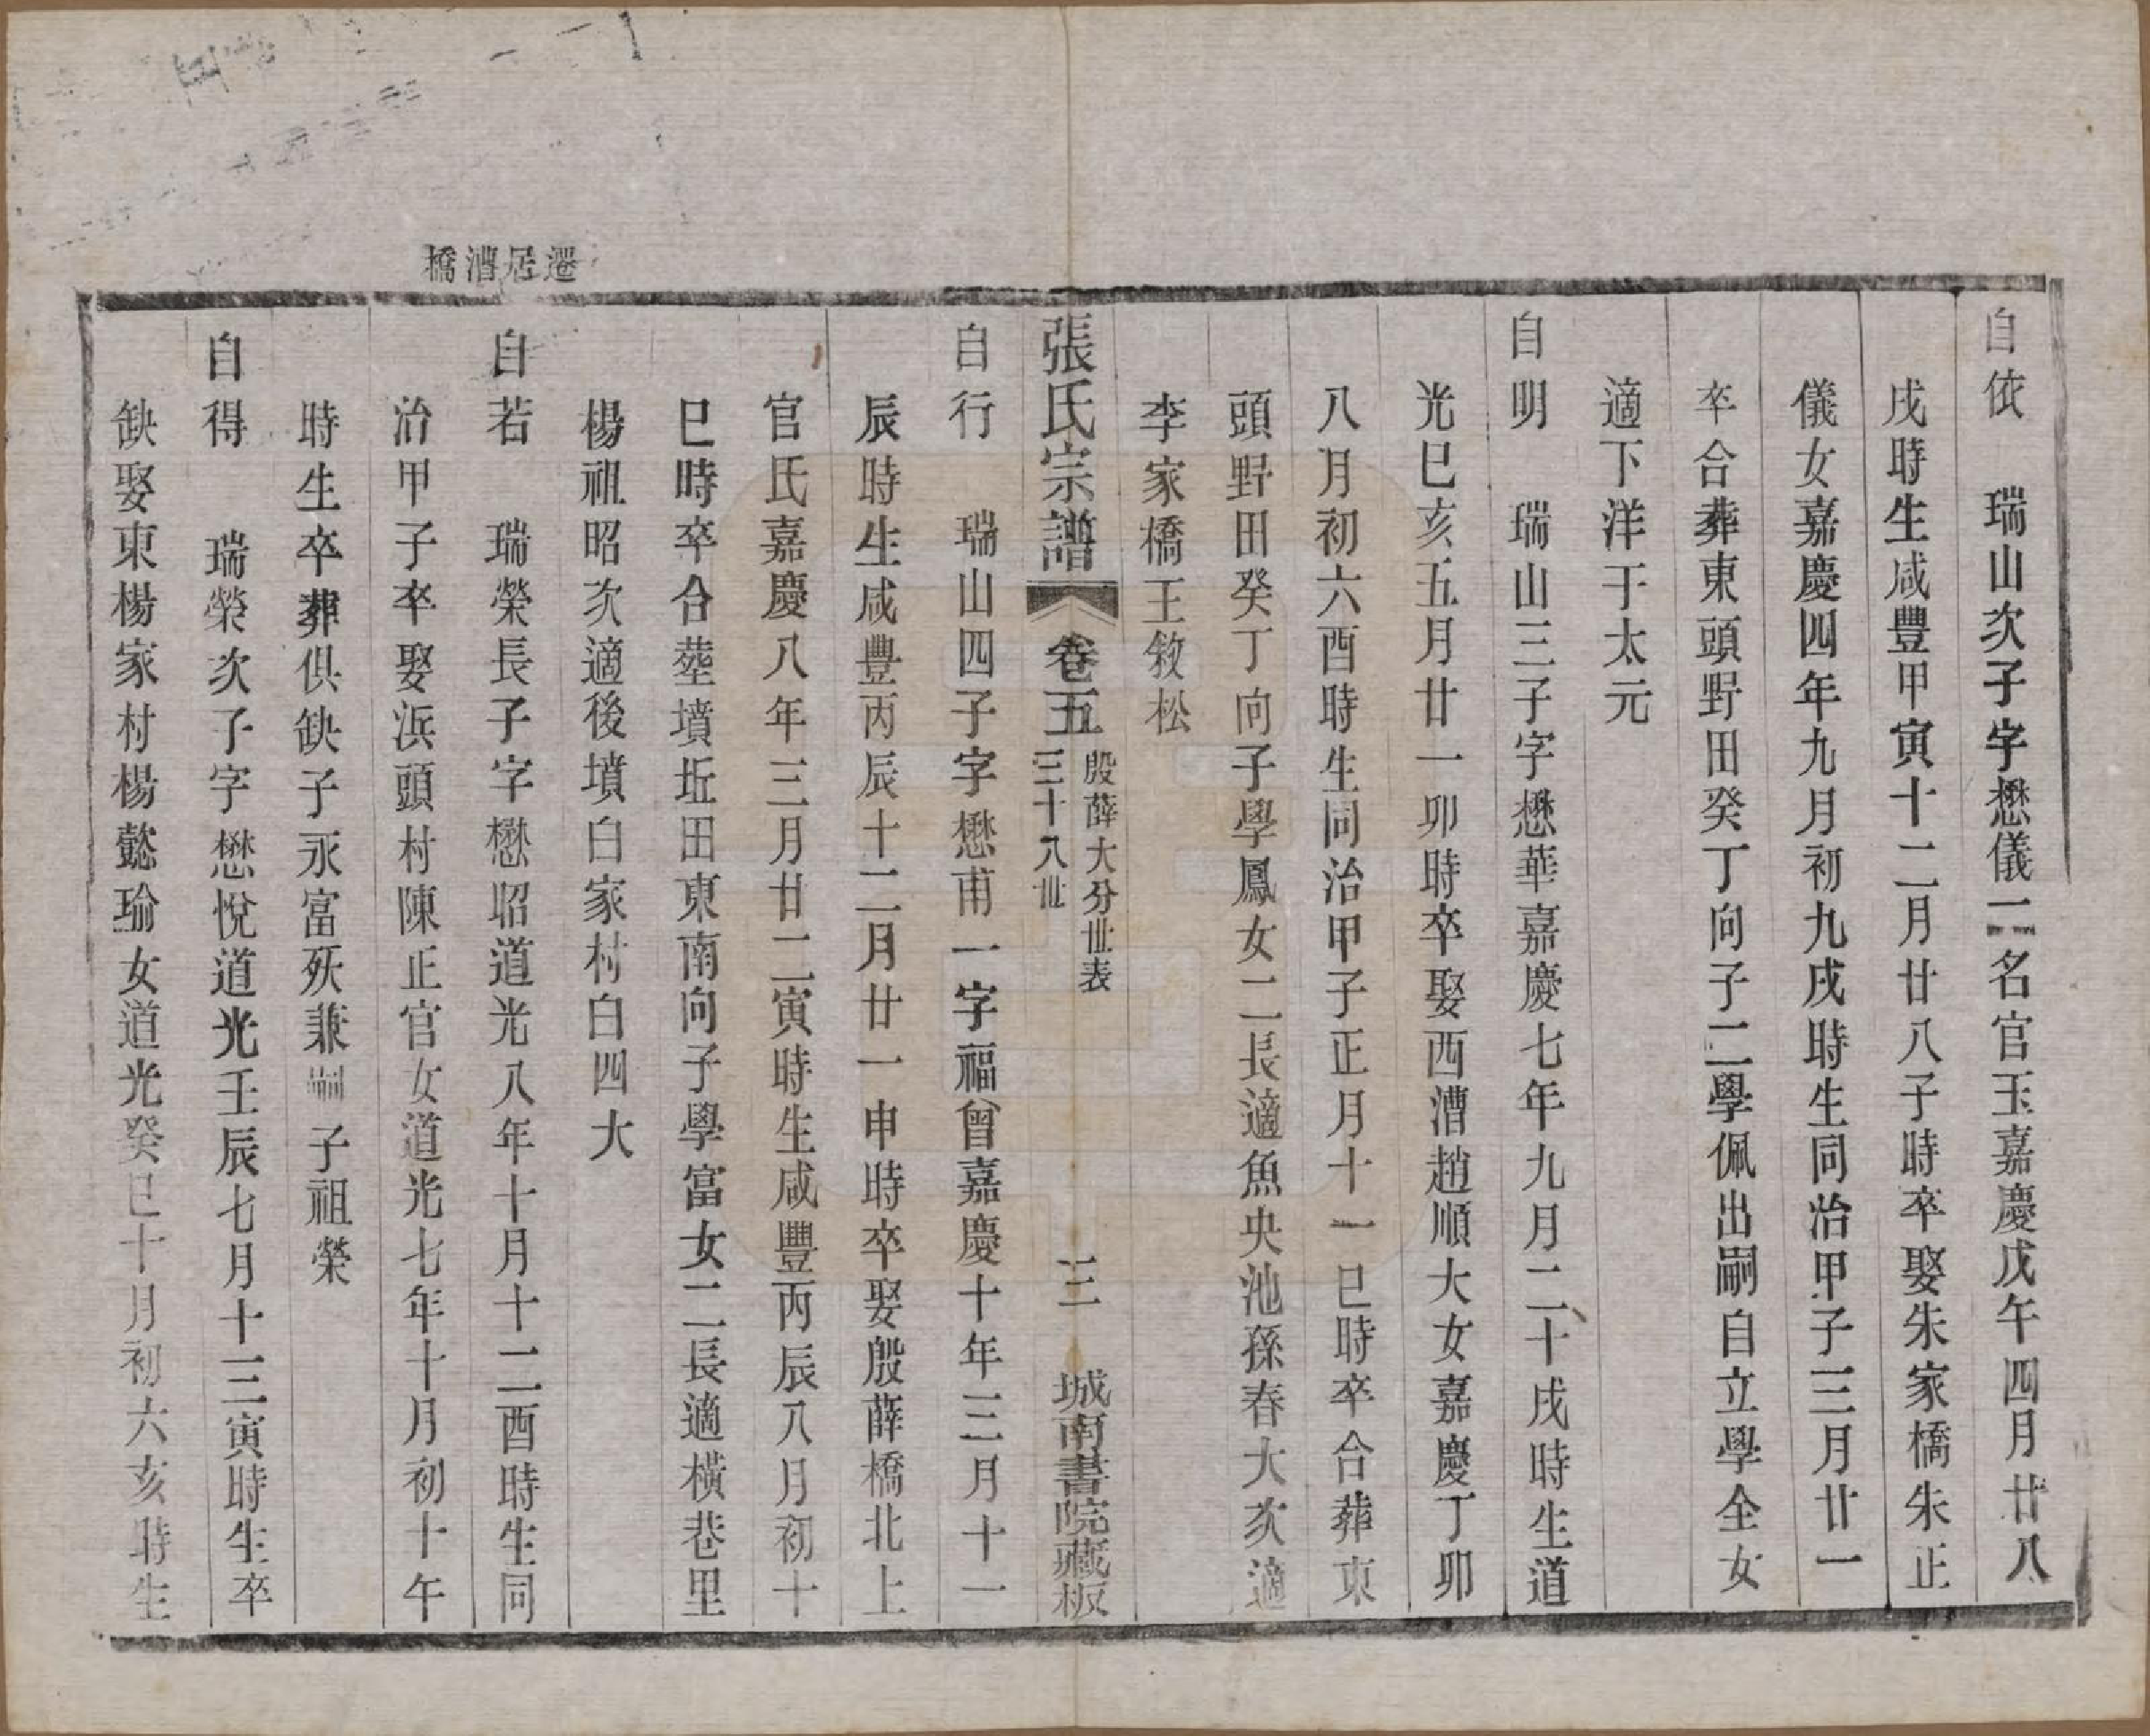 自依　瑞山次子字懋儀一名官玉嘉慶戊午四月廿八
戌時生咸豐甲寅十二月廿八子時卒娶朱家橋朱正
儀女嘉慶四年九月初九戌時生同治甲子三月廿一
卒合葬東頭野田癸丁向子二學佩出嗣自立學全女
適下洋于太元
自明　瑞山三子字懋華嘉慶七年九月二十戌時生道
光巳亥五月廿一卯時卒娶西漕趙順大女嘉慶丁卯
八月初六酉時生同治甲子正月十一巳時卒合葬東
頭野田癸丁向子學鳳女二長適魚央池孫春大次適
李家橋王敘松
張氏宗譜　卷五　殷薛大分世表　三十八世　三　城南書院藏板
自行　瑞山四子字懋甫一字福曾嘉慶十年三月十一
辰時生咸豐丙辰十二月廿一申時卒娶殷薛橋北上
官氏嘉慶八年三月廿二寅時生咸豐丙辰八月初十
巳時卒合塟墳坵田東南向子學富女二長適橫巷里
楊祖昭次適後墳白家村白四大
遷居漕橋
自若　瑞榮長子字懋昭道光八年十月十二酉時生同
治甲子卒娶浜頭村陳正官女道光七年十月初十午
時生卒葬俱缺子永富殀兼子祖榮
自得　瑞榮次子字懋悅道光壬辰七月十三寅時生卒
缺娶東楊家村楊懿瑜女道光癸巳十月初六亥時生